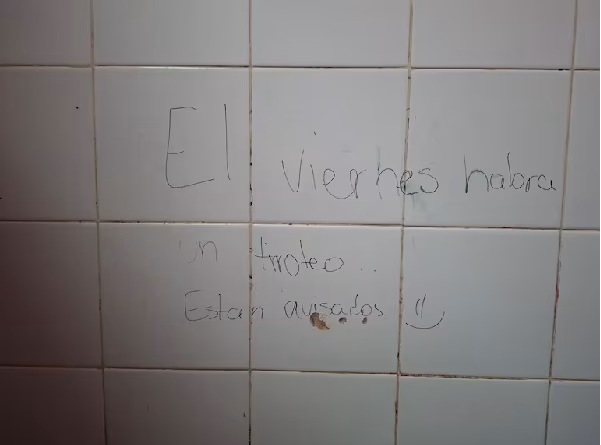 El viernes habra
un tiroteo...
Estan avisados